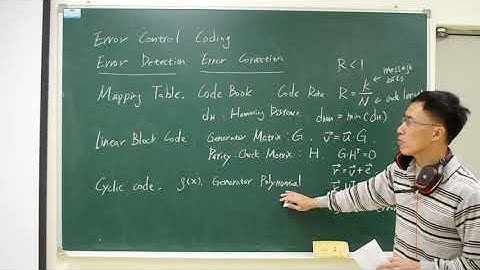 Error Control Coding
Error Detection Error Correction
R < 1
Mapping Table. Code Book Code Rate R = k/N
message bits
code length
dH : Hamming Distance dmin = min(dH)
Linear Block Code Generator Matrix : G. v = u · G.
Parity-Check Matrix : H. G·Hᵀ = 0
r = v + e
Cyclic code. g(x). Generator Polynomial